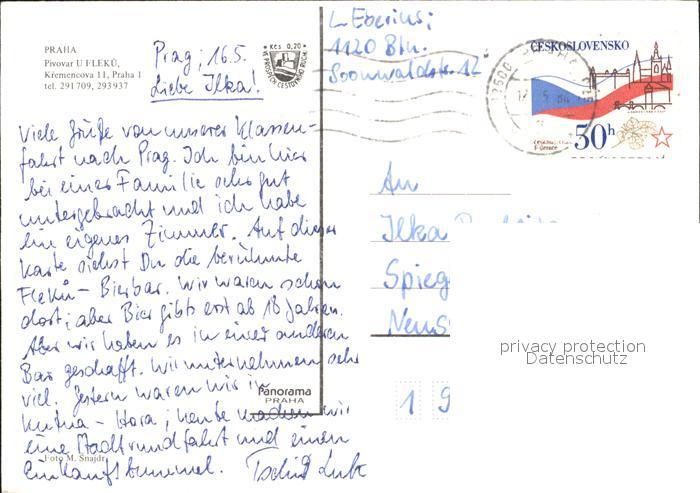 PRAHA
Pivovar U FLEKŮ,
Křemencova 11, Praha 1
tel. 291 709, 293 937
Prag, 16.5.
Liebe Ilka!
Kčs 0,20
VE PROSPĚCH CESTOVNÍHO RUCHU
Viele Grüße von unserer Klassen-
fahrt nach Prag. Ich bin hier
bei einer Familie sehr gut
untergebracht und ich habe
ein eigenes Zimmer. Auf dieser
Karte siehst Du die berühmte
Flekű-Bierbar. Wir waren schon
dort; aber Bier gibts erst ab 18 Jahren.
Aber wir haben es in einer anderen
Bar geschafft. Wir unternehmen sehr
viel. Gestern waren wir in
Kutna-Hora; heute machen wir
eine Stadtrundfahrt und einen
Einkaufsbummel. Tschüß Lutz
Panorama
PRAHA
Foto M. Snajdr
L. Eberius;
1120 Bln.
Soonwaldstr. 12
ČESKOSLOVENSKO
50h
An
Ilka
Spieg
Neus
1 9
privacy protection
Datenschutz